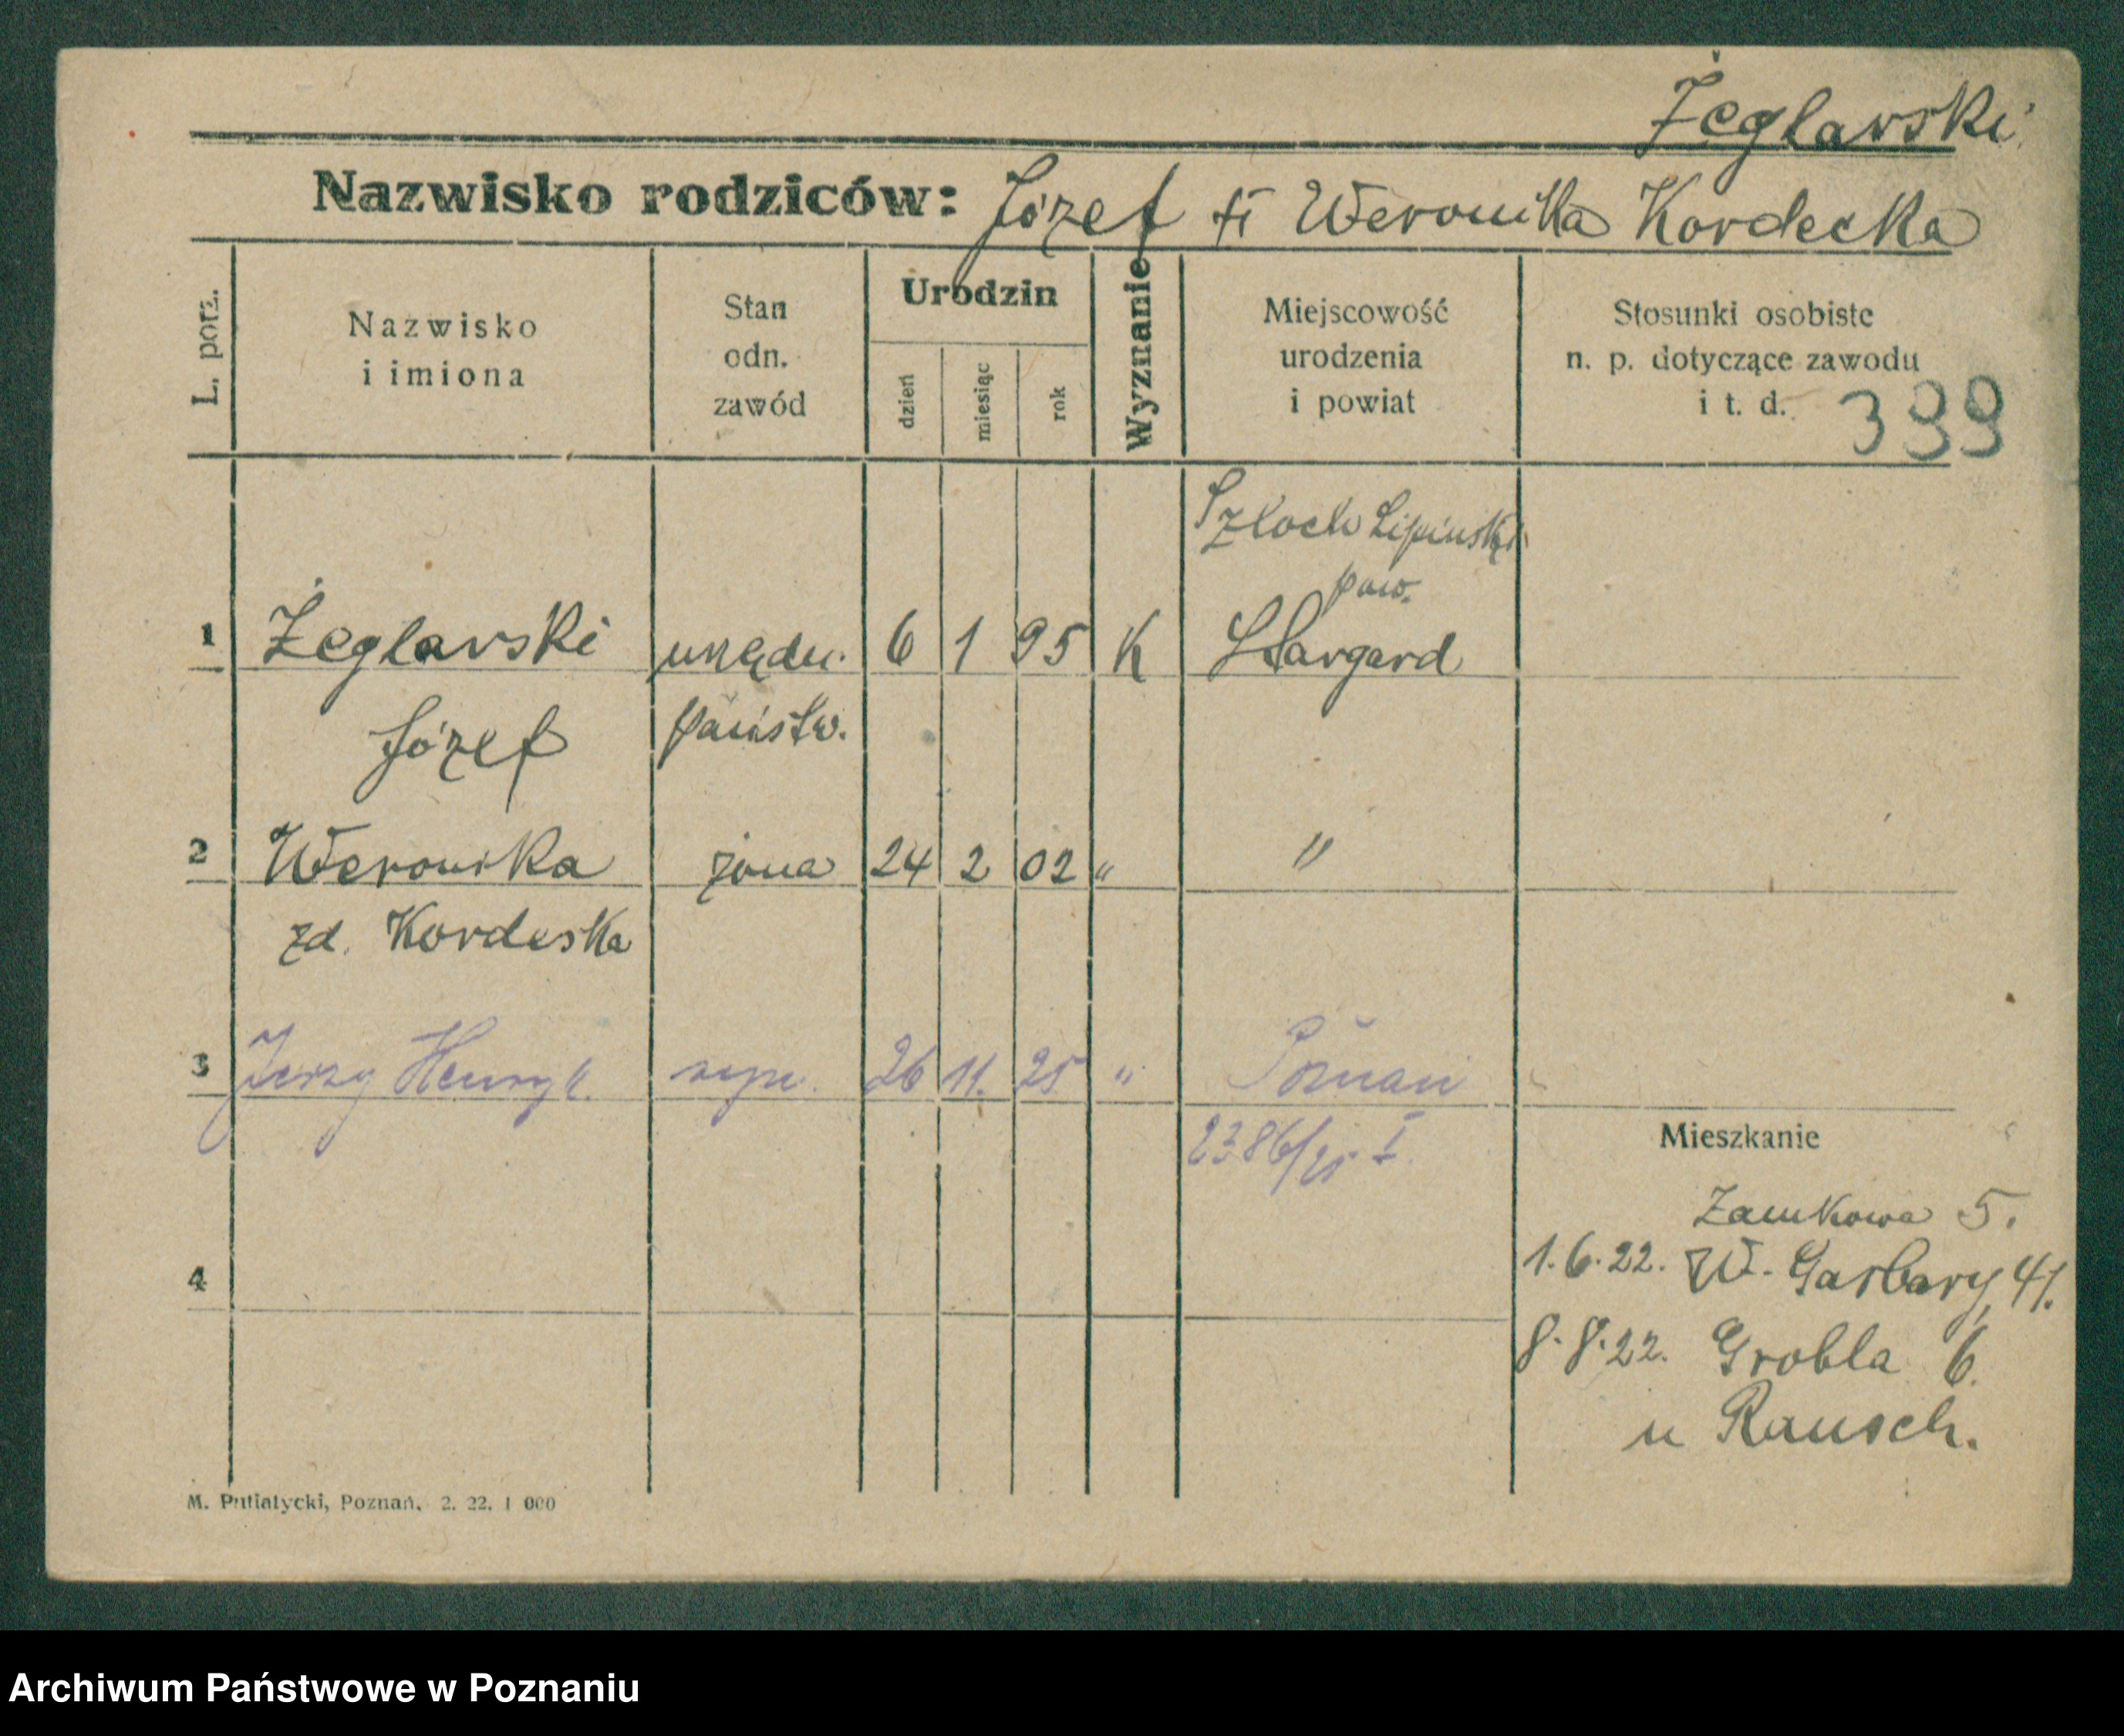 Żeglarski
Nazwisko rodziców: Józef i Weronika Kordecka
L. porz.
Nazwisko
i imiona
Stan
odn.
zawód
Urodzin
dzień
miesiąc
rok
Wyznanie
Miejscowość
urodzenia
i powiat
Stosunki osobiste
n. p. dotyczące zawodu
i t. d.
399
Szloch Lipiński
pow.
1 Żeglarski urzędn. 6 1 95 K Stargard
Józef państw.
2 Weronika żona 24 2 02 " "
zd. Kordeska
3 Jerzy Henryk. syn. 26 11. 25 " Poznań
2386/25 I
Mieszkanie
Zamkowa 5.
1.6.22. W. Garbary, 41.
4
8.8.22. Grobla 6.
u Rausch.
M. Putiatycki, Poznań. 2. 22. 1 000
Archiwum Państwowe w Poznaniu